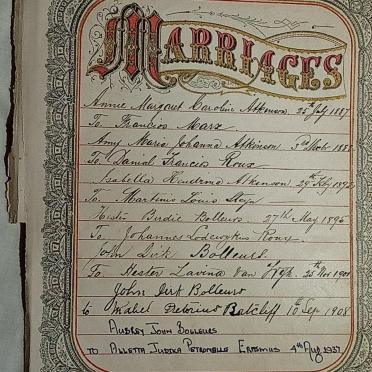 MARRIAGES
Annie Margaret Caroline Atkinson 25th July 1887
To Francis Marx
Amy Maria Johanna Atkinson 3rd
To Daniel Francis Roux
Isabella Hendrina Atkinson 29th
To Martinus Louis Steyn
Hester Birdie Bolleurs 27th May 1896
To Johannes Lodewykus Roux
John Dirk Bolleurs
To Hester Lavina Van Wyk 25th Nov
John Dirk Bolleurs
to Mabel Pretorius Ratcliff 10th Sep 1908
AUBREY JOHN BOLLEURS
TO ALLETTA JUDIKA PETRONELLA ERASMUS 4th Aug 1937